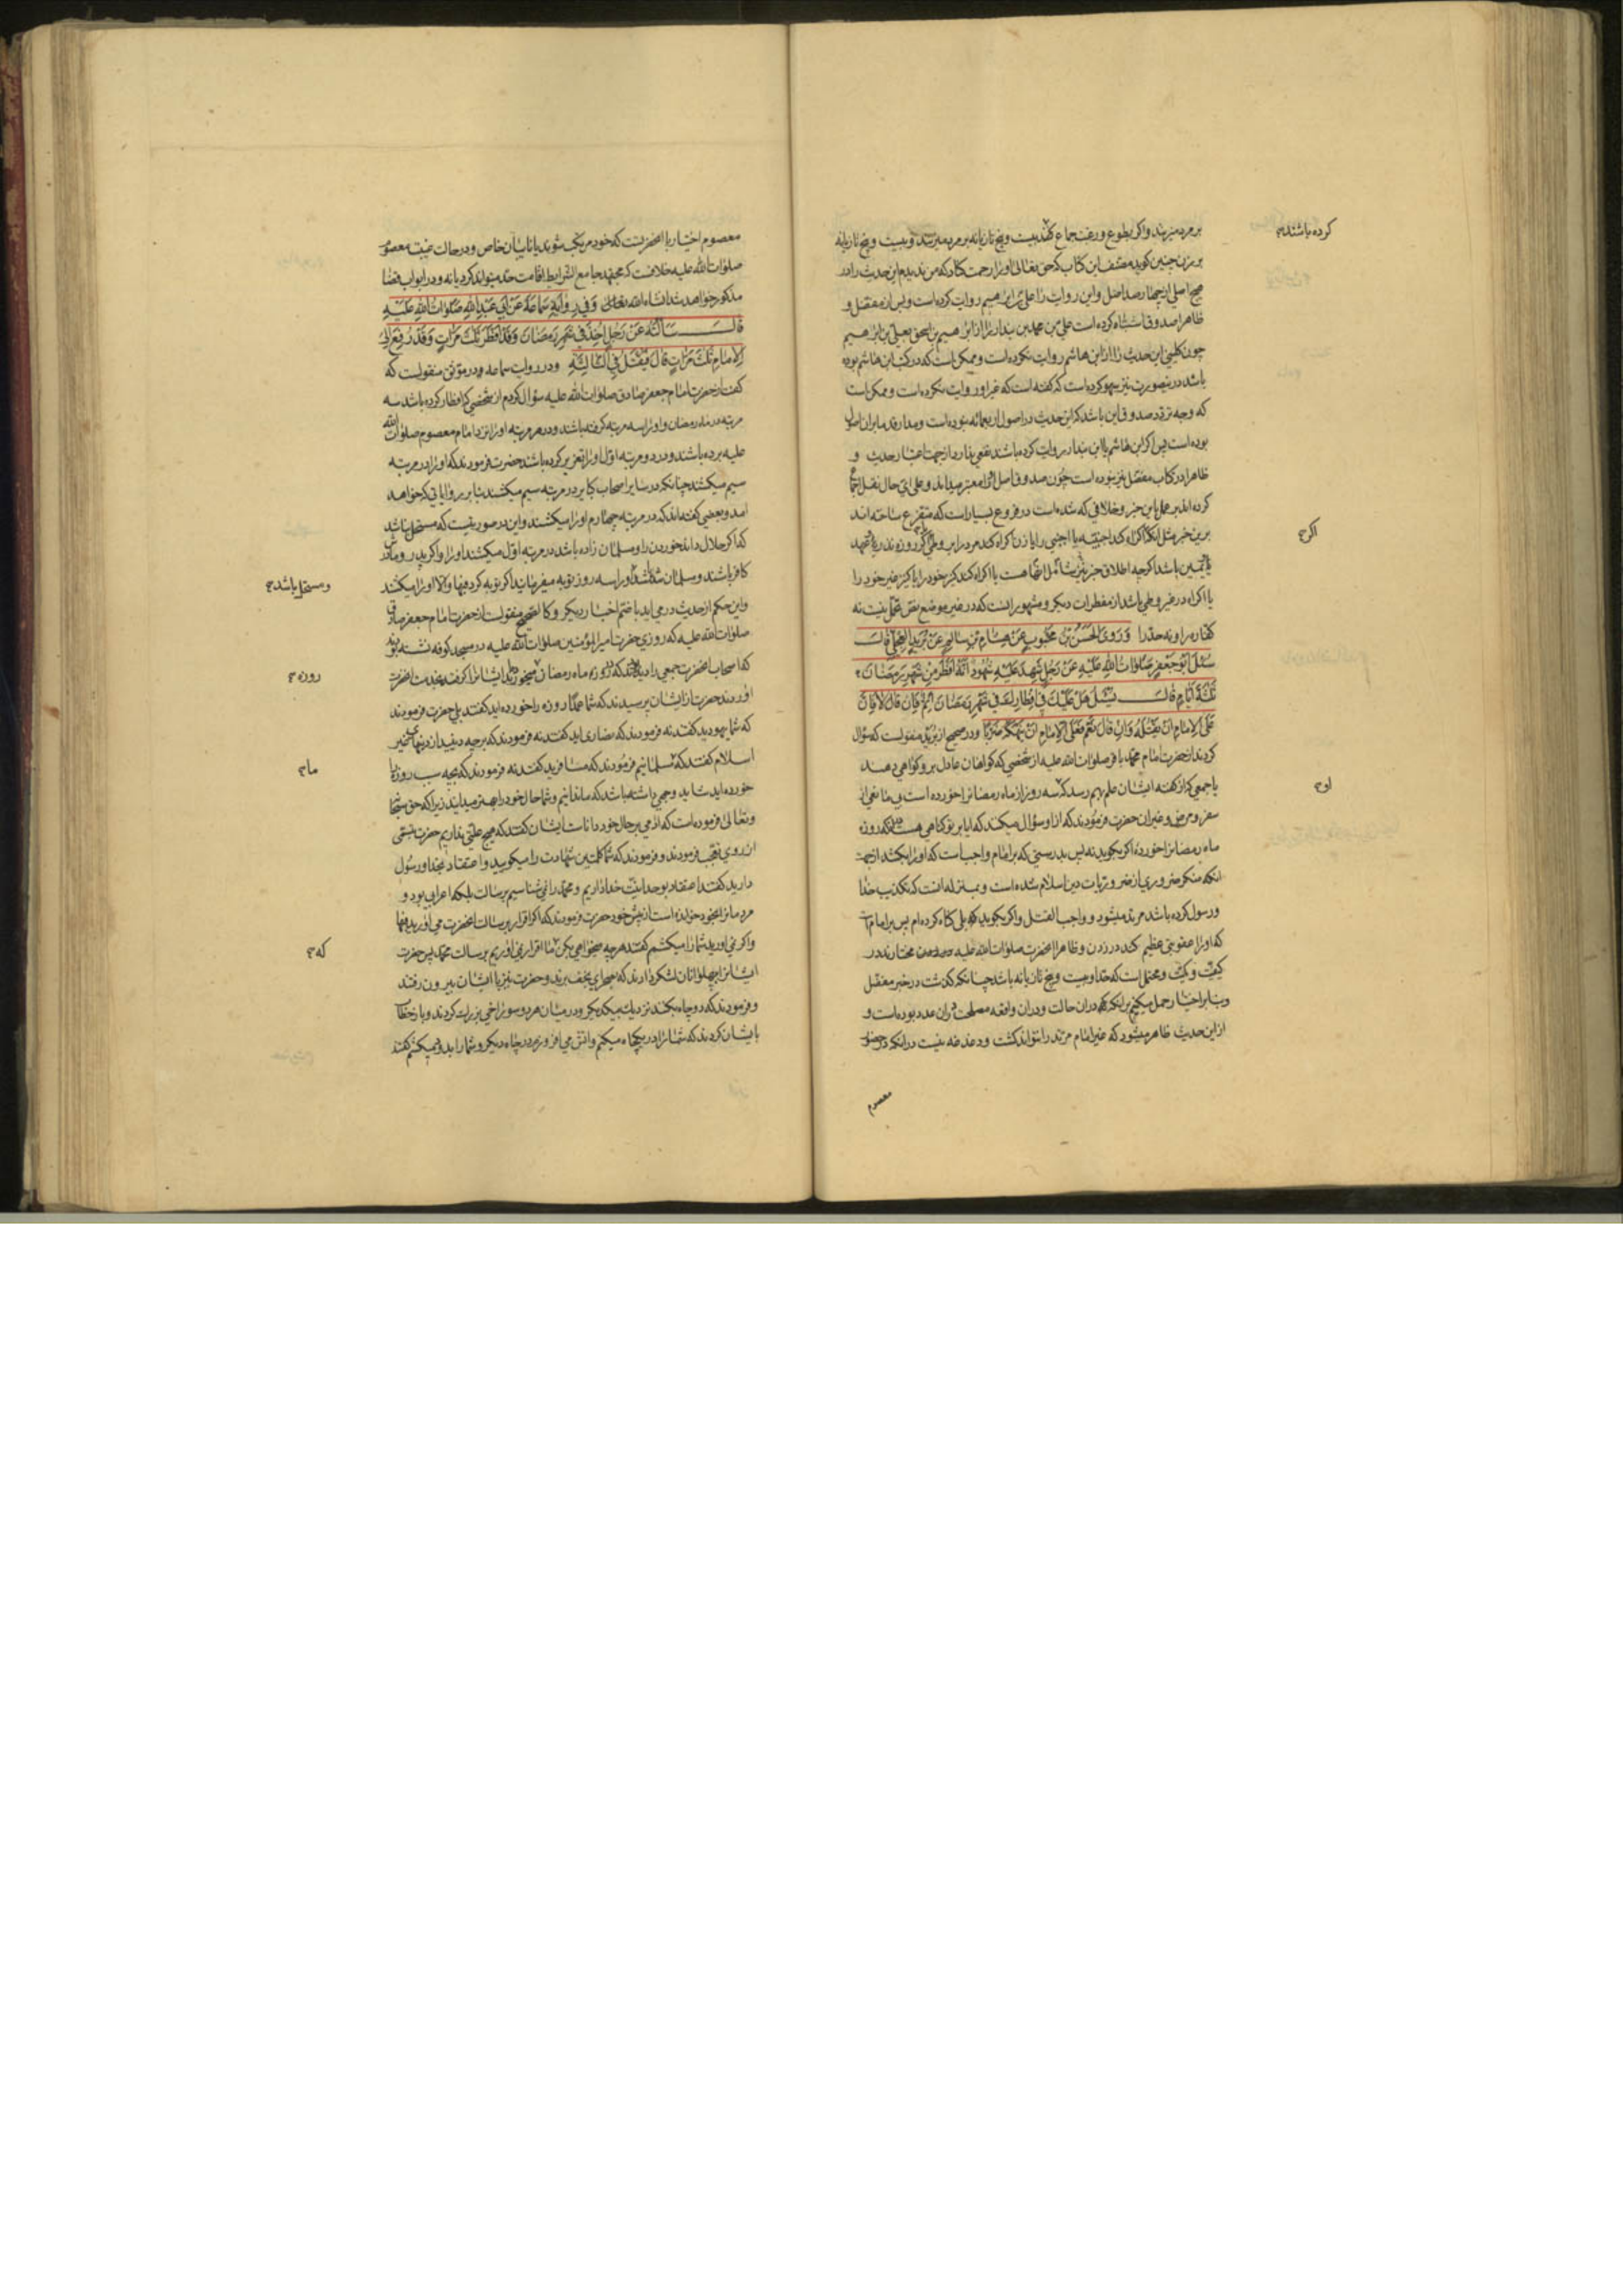 بر مرد میزنند واکر بطوع ورغبت جماع کنند بیست وپنج تازیانه بر مرد میزنند وبیست وپنج تازیانه
بر زن چنین کوید مصنف این کتاب که حق تعالی اورا رحمت کناد که من ندیدم این حدیث را در
هیچ اصلی از چهار صد اصل واین روایت را علی بن ابرهیم روایت کرده است وبس از مفضل و
ظاهرا صدوق اشتباه کرده است علی بن محمد بن بندار را از ابرهیم بن اسحق بعلی بن ابرهیم
چون کلینی این حدیث را از ابن هاشم روایت نکرده است وممکن است که در کتب ابن هاشم بوده
باشد در ینصورت نیز سهو کرده است که کفته است که غیر او روایت نکرده است وممکن است
که وجه تردد صدوق این باشد که این حدیث در اصول اربعمائه نبوده است ومدار قدما بر ان اصول
بوده است پس اکر ابن هاشم یا ابن بندار روایت کرده باشند نفعی ندارد از جهت اعتبار حدیث و
ظاهرا در کتاب مفضل نیز نبوده است چون صدوق اصل اورا معتبر میداند وعلی ای حال نقل اجماع
کرده اند بر عمل باین خبر وخلافی که شده است در فروع بسیار است که متفرع ساخته اند
برین خبر مثل انکه اکراه کند اجنبیه یا اجنبی را یا زن اکراه کند مرد را بر وطی اکر روزه نذر یا عهد
یا یمین باشد اکرچه اطلاق خبر نیز شامل انها هست یا اکراه کند کنیز خود را یا کنیز غیر خود را
یا اکراه در غیر وطی باشد از مفطرات دیکر ومشهور انست که در غیر موضع نص تحمل نیست نه
کفاره را ونه حد را وَرَوَی الْحَسَنُ بْنُ مَحْبُوبٍ عَنْ هِشَامِ بْنِ سَالِمٍ عَنْ بُرَیْدٍ الْعِجْلِیِّ قَالَ
سُئِلَ أَبُو جَعْفَرٍ صَلَوَاتُ اللهِ عَلَیْهِ عَنْ رَجُلٍ شَهِدَ عَلَیْهِ شُهُودٌ أَنَّهُ أَفْطَرَ مِنْ شَهْرِ رَمَضَانَ
ثَلٰثَةَ أَیَّامٍ قَالَ یُسْئَلُ هَلْ عَلَیْكَ فِی إِفْطَارِكَ فِی شَهْرِ رَمَضَانَ إِثْمٌ فَإِنْ قَالَ لَا فَإِنَّ
عَلَی الْإِمَامِ أَنْ یَقْتُلَهُ وَإِنْ قَالَ نَعَمْ فَعَلَی الْإِمَامِ أَنْ یَنْهَکَهُ ضَرْبًا ودر صحیح از برید منقولست که سؤال
کردند از حضرت امام محمد باقر صلوات الله علیه از شخصی که کواهان عادل برو کواهی دهند
یا جمعی که از کفته ایشان علم بهم رسد که سه روز از ماه رمضانرا خورده است بی مانعی از
سفر ومرض وغیر ان حضرت فرمودند که از او سؤال میکند که ایا بر تو کناهی هست در انکه روزه
ماه رمضانرا خورده اکر بکوید نه پس بدرستی که بر امام واجب است که اورا بکشد از جهة
انکه منکر ضروری از ضروریات دین اسلام شده است وبمنزله انست که تکذیب خدا
ورسول کرده باشد مرتد میشود وواجب القتل واکر بکوید که بلی کناه کرده ام پس بر امام است
که اورا عقوبتی عظیم کند در زدن وظاهرا انحضرت صلوات الله علیه مختارند در
کیفیت وکمیت ومحتمل است که حد او بیست وپنج تازیانه باشد چنانکه کذشت در خبر مفضل
وبنابر اختیار حمل میکنیم بر انکه که در ان حالت ودر ان واقعه مصلحت در ان عدد بوده است و
از این حدیث ظاهر میشود که غیر امام مرتد را نتواند کشت ودغدغه نیست در انکه در حضور
معصوم
کرده باشند
اکر
او
معصوم اختیار با انحضرتست که خود مرتکب شوند یا نایبان خاص ودر حالت غیبت معصوم
صلوات الله علیه خلافست که مجتهد جامع الشرایط اقامت حد میتواند کرد یا نه ودر ابواب قضا
مذکور خواهد شد انشاء الله تعالی وَفِی رِوَایَةِ سَمَاعَةَ عَنْ أَبِی عَبْدِ اللهِ صَلَوَاتُ اللهِ عَلَیْهِ
قَالَ سَأَلْتُهُ عَنْ رَجُلٍ أُخِذَ فِی شَهْرِ رَمَضَانَ وَقَدْ أَفْطَرَ ثَلٰثَ مَرَّاتٍ وَقَدْ رُفِعَ إِلَی
الْإِمَامِ ثَلٰثَ مَرَّاتٍ قَالَ فَیُقْتَلُ فِی الثَّالِثَةِ ودر روایت سماعه ودر موثق منقولست که
کفت از حضرت امام جعفر صادق صلوات الله علیه سؤال کردم از شخصی که افطار کرده باشد سه
مرتبه در ماه رمضان واورا سه مرتبه کرفته باشند ودر هر مرتبه اورا نزد امام معصوم صلوات الله
علیه برده باشند ودر دو مرتبه اول اورا تعزیر کرده باشند حضرت فرمودند که اورا در مرتبه
سیم میکشند چنانکه در سایر اصحاب کبایر در مرتبه سیم میکشند بنابر روایاتی که خواهد
امد وبعضی کفته اند که در مرتبه چهارم اورا میکشند واین در صورتیست که مستحل نباشد
که اکر حلال داند خوردن را ومسلمان زاده باشد در مرتبه اول میکشند اورا واکر پدر ومادرش
کافر باشند ومسلمان شده باشد اورا سه روز توبه میفرمایند اکر توبه کرد فبها والا اورا میکشند
واین حکم از حدیث در می اید با ضم اخبار دیکر وکالصحیح منقولست از حضرت امام جعفر صادق
صلوات الله علیه که روزی حضرت امیر المؤمنین صلوات الله علیه در مسجد کوفه نشسته بودند
که اصحاب انحضرت جمعی را دیدند که در روز ماه رمضان میخوردند ایشانرا کرفتند بخدمت انحضرت
اوردند حضرت از ایشان پرسیدند که شما عمدا روزه را خورده اید کفتند بلی حضرت فرمودند
که شما یهودید کفتند نه فرمودند که نصاری اید کفتند نه فرمودند که بر چه دینید از دینهای غیر
اسلام کفتند که مسلمانیم فرمودند که مسافرید کفتند نه فرمودند که بچه سبب روزه را
خورده اید شاید وجهی داشته باشد که ما ندانیم وشما حال خود را بهتر میدانید زیرا که حق سبحانه
وتعالی فرموده است که ادمی بر حال خود داناست ایشان کفتند که هیچ علتی نداریم حضرت تبسمی
از روی تعجب فرمودند وفرمودند که شما کلمتین شهادت را میکویید واعتقاد بخدا ورسول
دارید کفتند اعتقاد بوحدانیت خدا داریم ومحمد را نمی شناسیم برسالت بلکه اعرابی بود و
مردمانرا بخود خوانده است از پیش خود حضرت فرمودند که اکر اقرار برسالت انحضرت می اورید فبها
واکر نمی اورید شما را میکشم کفتند هرچه میخواهی بکن ما اقرار نمی اوریم برسالت محمد پس حضرت
ایشانرا بپهلوانان لشکر دادند که بصحرای نجف برند وحضرت نیز با ایشان بیرون رفتند
وفرمودند که دو چاه بکنند نزدیك بیکدیکر ودر میان هر دو سوراخی بزرك کردند وباز خطاب
بایشان کردند که شما را در یکچاه میکنم واتش می افروزم در چاه دیکر وشما را بدود میکشم کفتند
ومستحل باشد
روزه
ما
که